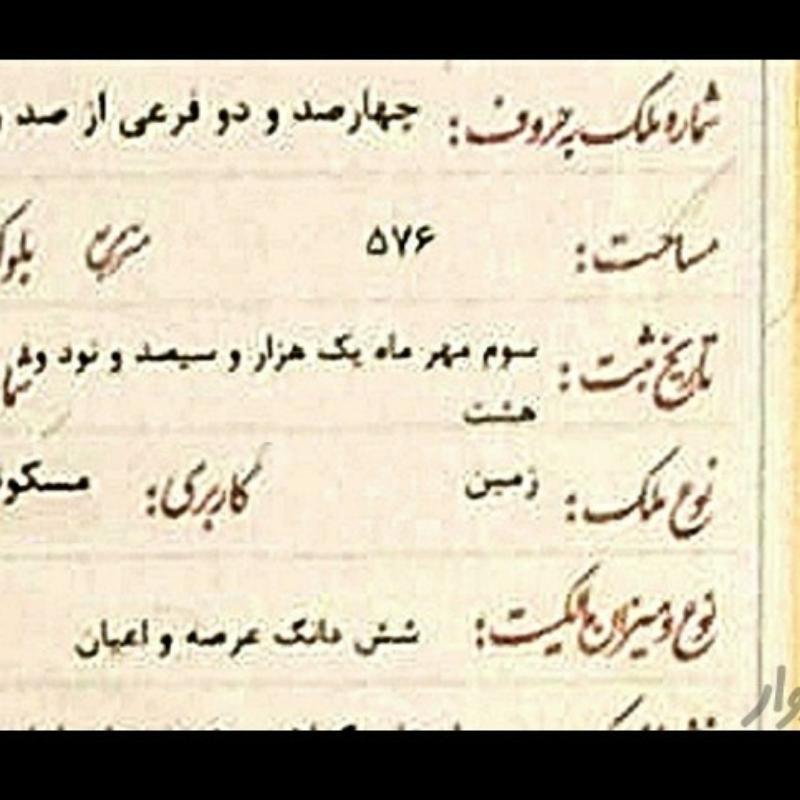 شماره ملک به حروف: چهارصد و دو فرعی از صد و
مساحت: ۵۷۶ متری
تاریخ ثبت: سوم مهر ماه یک هزار و سیصد و نود و
هشت
نوع ملک: زمین کاربری:
نوع و میزان مالکیت: شش دانگ عرصه و اعیان